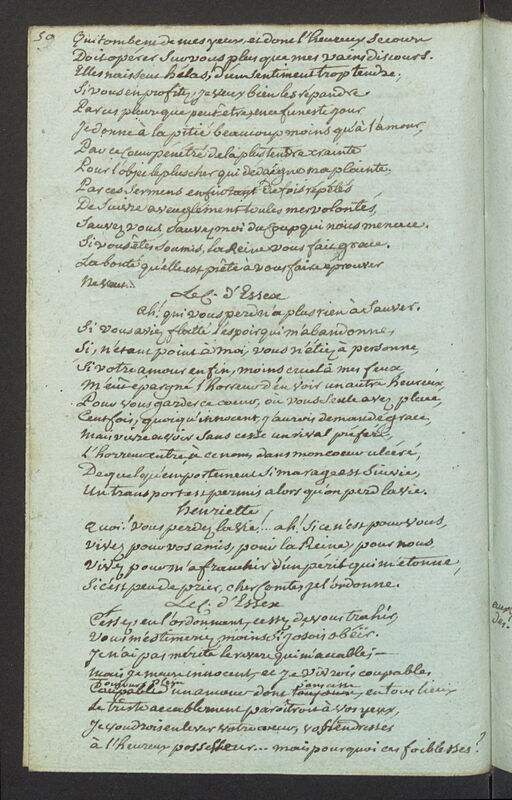 50
Qui tombent de mes yeux, et dont l'heureux secours
Doit opérer sur vous plus que mes vains discours.
Elles naissent hélas, d'un sentiment trop tendre,
Si vous en profitez, je veux bien les répandre.
Par ces pleurs que peut être, en ce funeste jour
Je donne à la pitié beaucoup moins qu'à l'amour,
Par ce cœur pénétré de la plus tendre crainte
Pour l'objet le plus cher qui dédaigne ma plainte.
Par ces sermens enfin tant de fois répétés
De suivre aveuglément toutes mes volontés,
Sauvez vous, sauvez moi du coup qui nous menace.
Si vous êtes soumis, la Reine vous fait grace.
La bonté qu'elle est prête à vous faire éprouver
Ne veut...
Le C. d'Essex
Ah! qui vous perd n'a plus rien à sauver.
Si vous aviez flatté l'espoir qui m'abandonne,
Si, n'étant point à moi, vous n'étiez à personne,
Si votre amour enfin, moins cruel à mes feux
M'eût épargné l'horreur d'en voir un autre heureux,
Pour vous garder ce cœur, où vous seule avez place,
Cent fois, quoiqu'innocent, j'aurois demandé grace,
Mais vivre et voir sans cesse un rival préféré,
L'horreur entre, à ce nom, dans mon cœur ulcéré,
De quelqu'emportement si ma rage est suivie,
Un transport est permis alors qu'on perd la vie.
henriette
Quoi! vous perdez la vie!... ah! si ce n'est pour vous,
vivez pour vos amis, pour la Reine, pour nous
vivez pour m'affranchir d'un péril qui m'étonne,
Si c'est peu de prier, cher Comte, je l'ordonne.
Le C. d'Essex
Cessez, en l'ordonnant, cessez de vous trahir,
Vous m'estimerez moins si j'osois obéir.
Je n'ai pas mérité le revers qui m'accable;
mais je meurs innocent, et je vivrois coupable
toujours plein
d'un amour dont sans cesse, en tous lieux
Le triste accablement paroîtroit à vos yeux,
Je voudrois enlever votre cœur, vos tendresses
à l'heureux possesseur... mais pourquoi ces foiblesses?